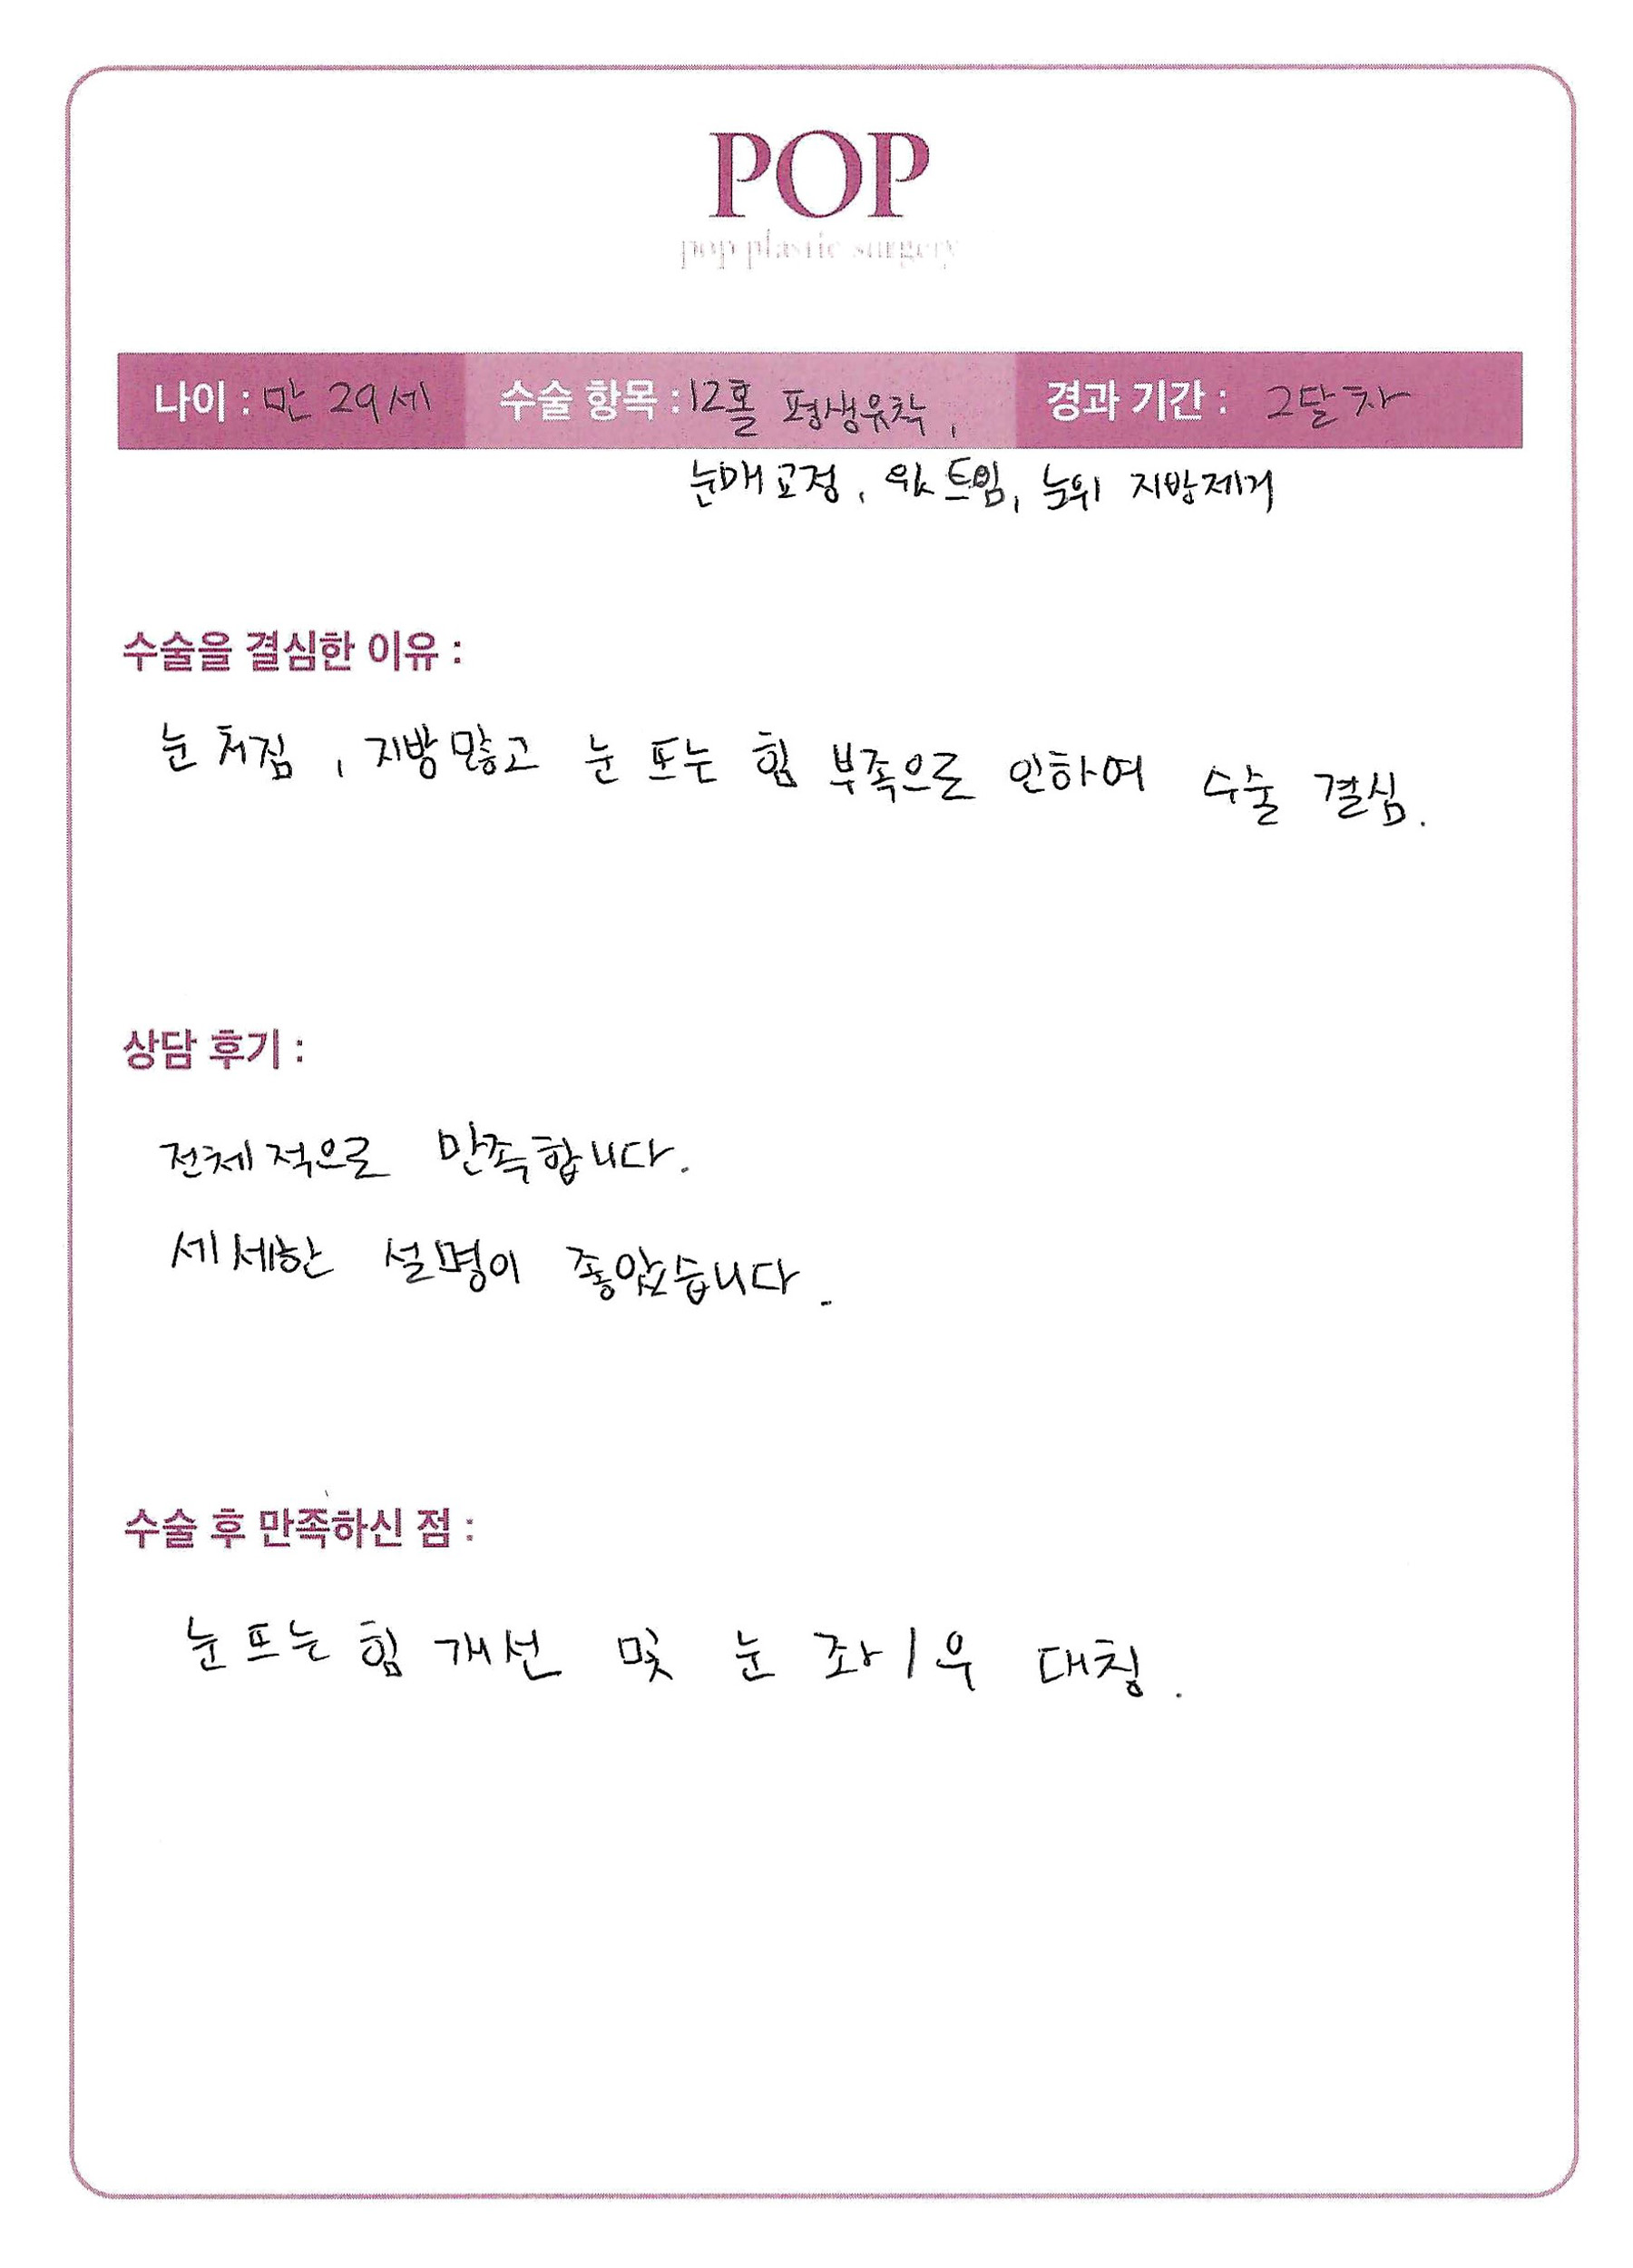 POP
pop plastic surgery
나이 : 만 29세 수술 항목 : 12홀 평생유착, 경과 기간 : 2달차
눈매교정, 윗트임, 눈위 지방제거
수술을 결심한 이유 :
눈 처짐, 지방많고 눈 뜨는 힘 부족으로 인하여 수술 결심.
상담 후기 :
전체적으로 만족합니다.
세세한 설명이 좋았습니다.
수술 후 만족하신 점 :
눈 뜨는 힘 개선 및 눈 좌/우 대칭.